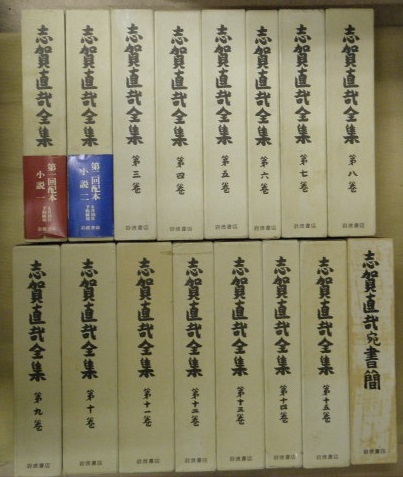 志賀直哉全集
第一回配本
小説一
岩波書店
志賀直哉全集
第二回配本
小説二
岩波書店
志賀直哉全集
第三巻
岩波書店
志賀直哉全集
第四巻
岩波書店
志賀直哉全集
第五巻
岩波書店
志賀直哉全集
第六巻
岩波書店
志賀直哉全集
第七巻
岩波書店
志賀直哉全集
第八巻
岩波書店
志賀直哉全集
第九巻
岩波書店
志賀直哉全集
第十巻
岩波書店
志賀直哉全集
第十一巻
岩波書店
志賀直哉全集
第十二巻
岩波書店
志賀直哉全集
第十三巻
岩波書店
志賀直哉全集
第十四巻
岩波書店
志賀直哉全集
第十五巻
岩波書店
志賀直哉宛書簡
岩波書店